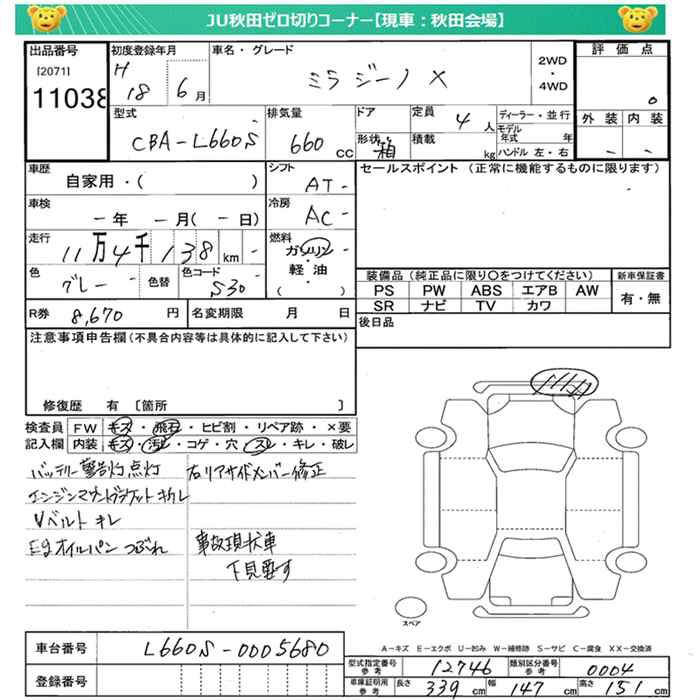 JU秋田ゼロ切りコーナー【現車:秋田会場】
出品番号 初度登録年月 車名・グレード 評価点
[2071] H 18 6月 ミラジーノ X 2WD・4WD 0
11038
型式 排気量 ドア 定員 ディーラー・並行 外装 内装
CBA-L660S 660cc 4人 モデル年式 年
形状 箱 積載 kg ハンドル 左・右 - -
車歴 シフト セールスポイント (正常に機能するものに限ります)
自家用・( ) AT-
車検 冷房
-年 -月(-日) AC-
走行 燃料
11万4千138km ガソリン
色 色替 色コード 軽油
グレー- S30- ( )
装備品(純正品に限り○をつけてください) 新車保証書
PS PW ABS エアB AW 有・無
SR ナビ TV カワ
R券 8,670円 名変期限 月 日 後日品
注意事項申告欄(不具合内容等は具体的に記入して下さい)
修復歴 有 [箇所 ]
検査員 FW キズ・飛石・ヒビ割・リペア跡・×要
記入欄 内装 キズ・汚レ・コゲ・穴・スレ・キレ・破レ
バッテリー警告灯点灯 右リアサイドメンバー修正
エンジンマウントブラケットキカレ
Vベルト キレ
Egオイルパン つぶれ 事故現状車
下見要す
スペア
車台番号 L660S-0005680
A-キズ E-エクボ U-凹み W-補修跡 S-サビ C-腐食 XX-交換済
登録番号
型式指定番号参考 12746 類別区分番号参考 0004
車庫証明用参考 長さ 339cm 幅 147cm 高さ 151cm